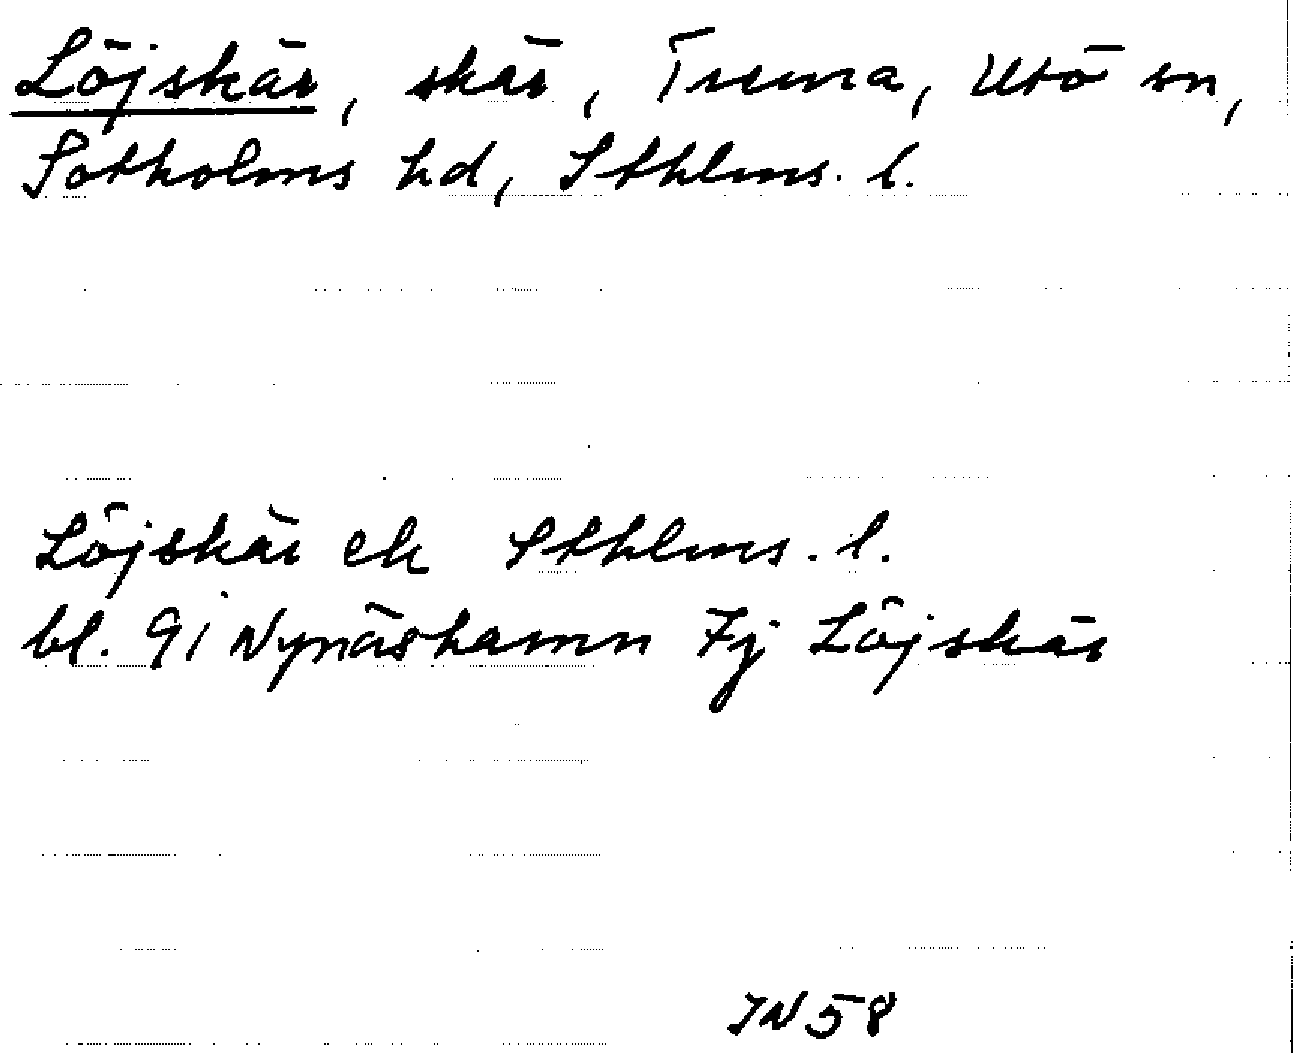 Löjskär, skär, Trema, Utö sn,
Sotholms hd, Sthlms. l.
Löjskär ek Sthlms. l.
bl. 91 Nynäshamn Fj Löjskär
IN 58